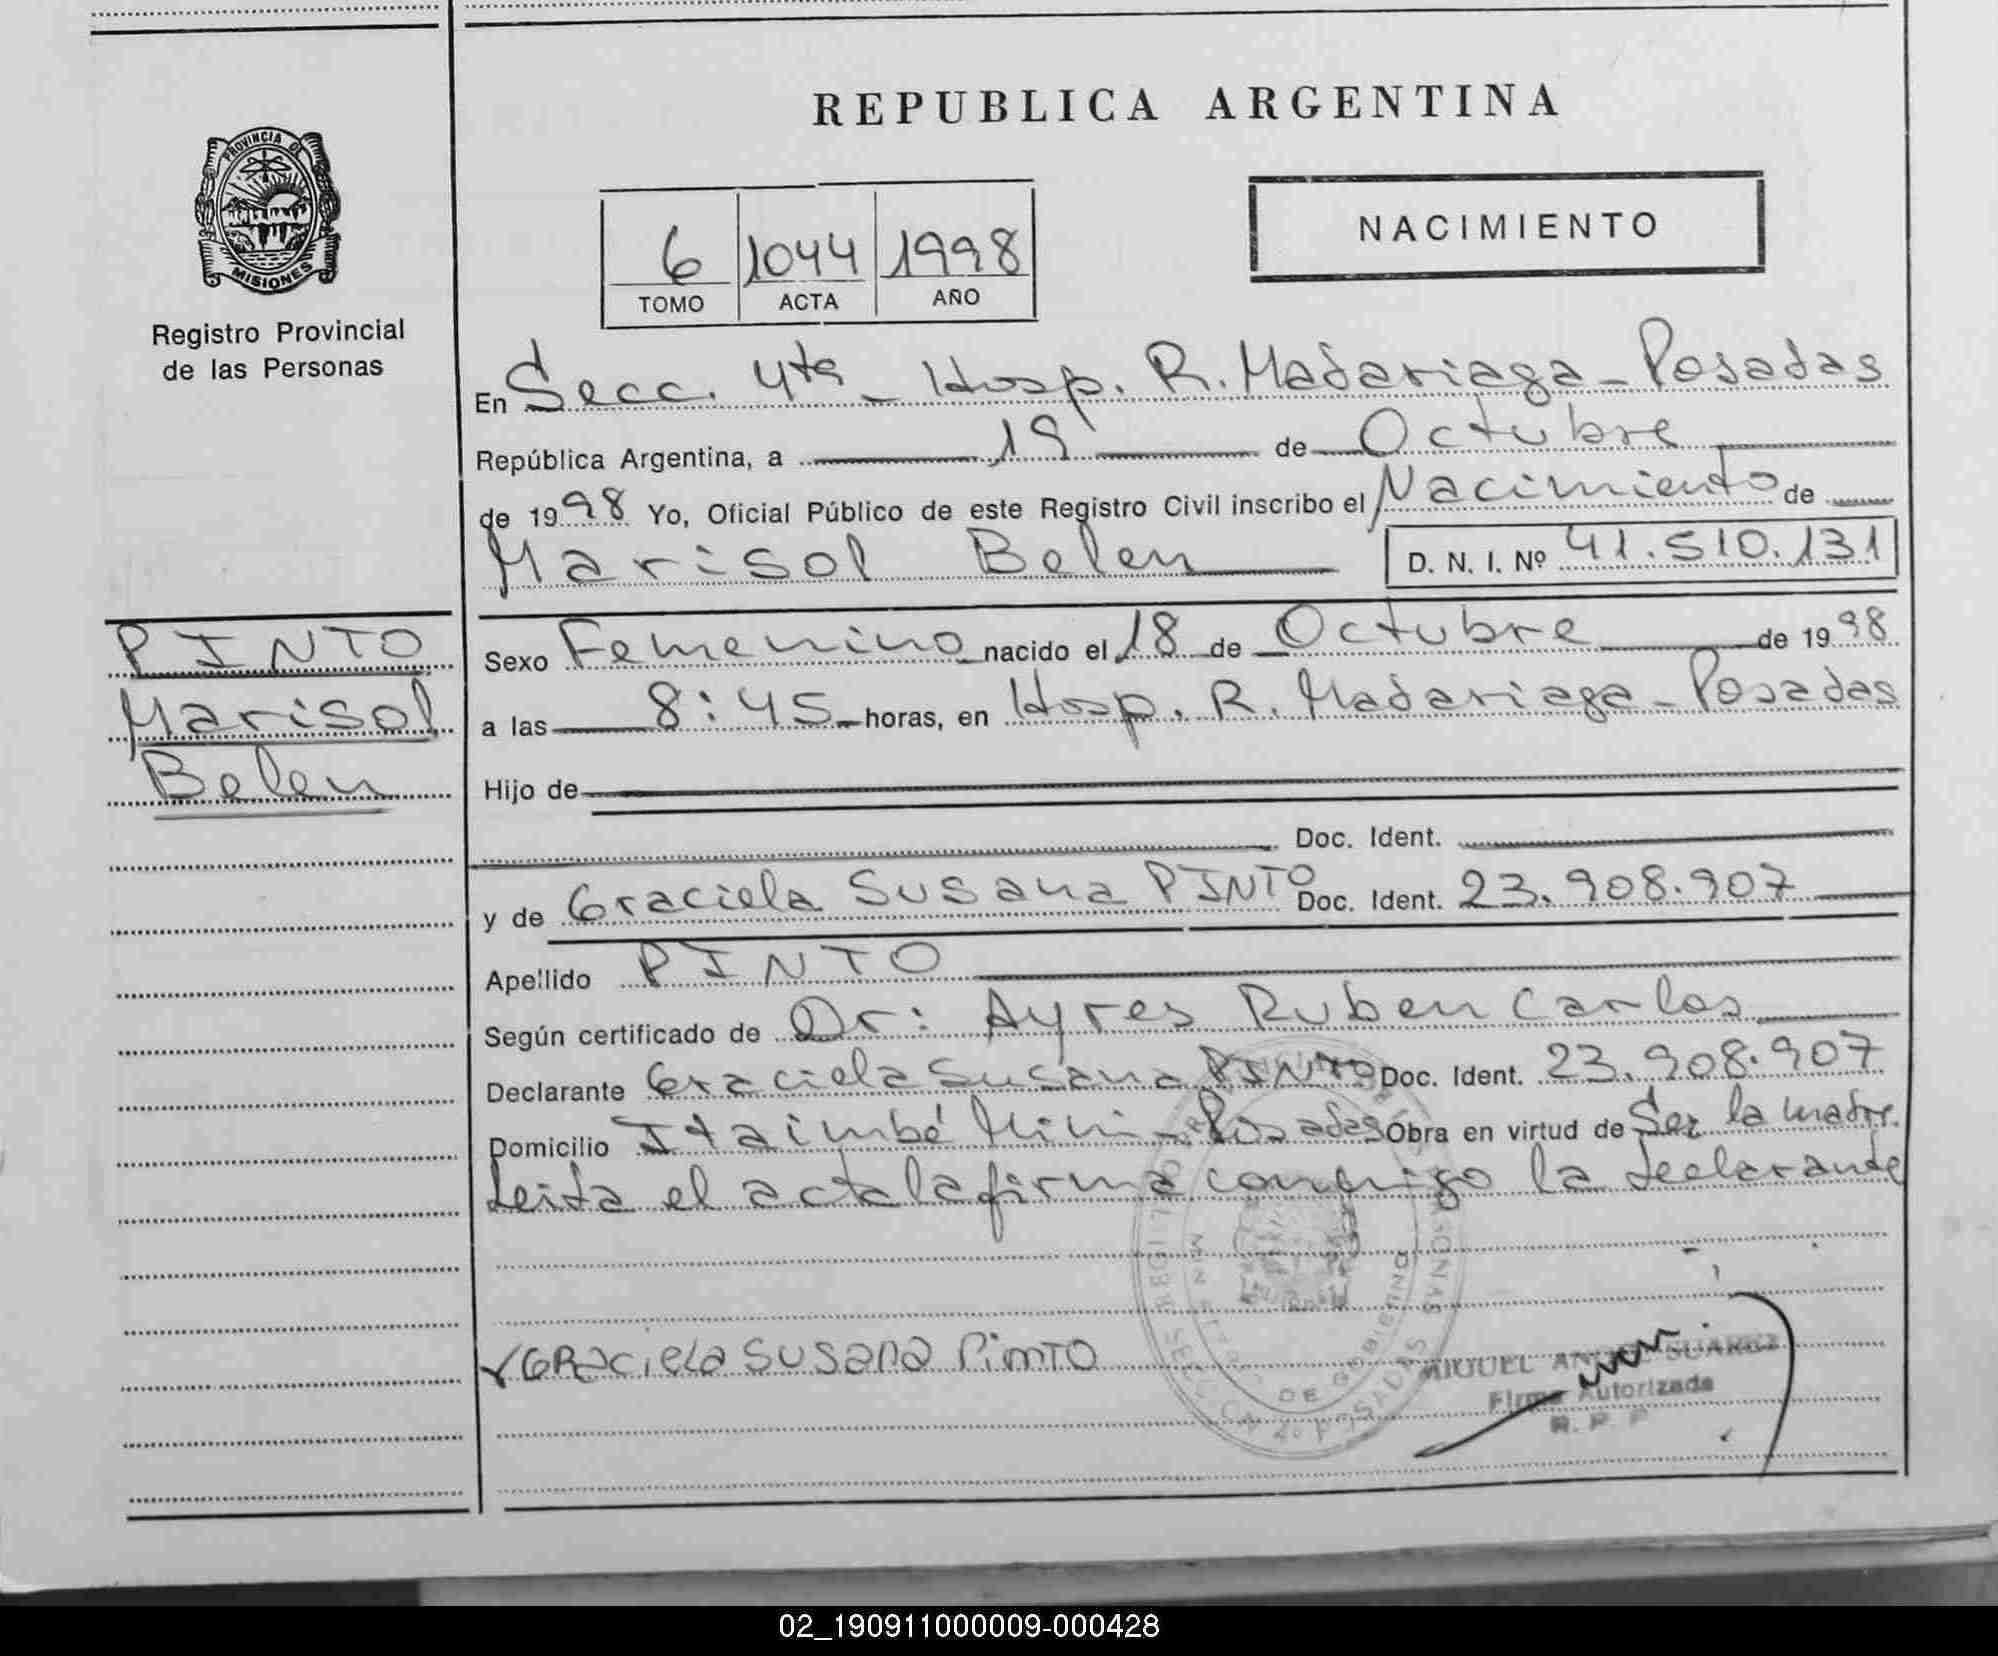 REPUBLICA ARGENTINA
PROVINCIA DE
MISIONES
Registro Provincial
de las Personas
6 1044 1998
TOMO ACTA AÑO
NACIMIENTO
En Secc. 4ta - Hosp. R. Madariaga - Posadas
República Argentina, a 19 de Octubre
de 1998 Yo, Oficial Público de este Registro Civil inscribo el Nacimiento de
Marisol Belen D. N. I. Nº 41.510.131
PINTO
Marisol
Belen
Sexo Femenino nacido el 18 de Octubre de 1998
a las 8:45 horas, en Hosp. R. Madariaga - Posadas
Hijo de
Doc. Ident.
y de Graciela Susana PINTO Doc. Ident. 23.908.907
Apellido PINTO
Según certificado de Dr: Ayres Ruben Carlos
Declarante Graciela Susana PINTO Doc. Ident. 23.908.907
Domicilio Itaimbé Mini - Posadas Obra en virtud de Ser la madre.
Leida el acta la firma conmigo la declarante
Graciela Susana Pinto
MIGUEL ANGEL SUAREZ
Firma Autorizada
R. P. P
DE GOBIERNO
POSADAS
02_190911000009-000428